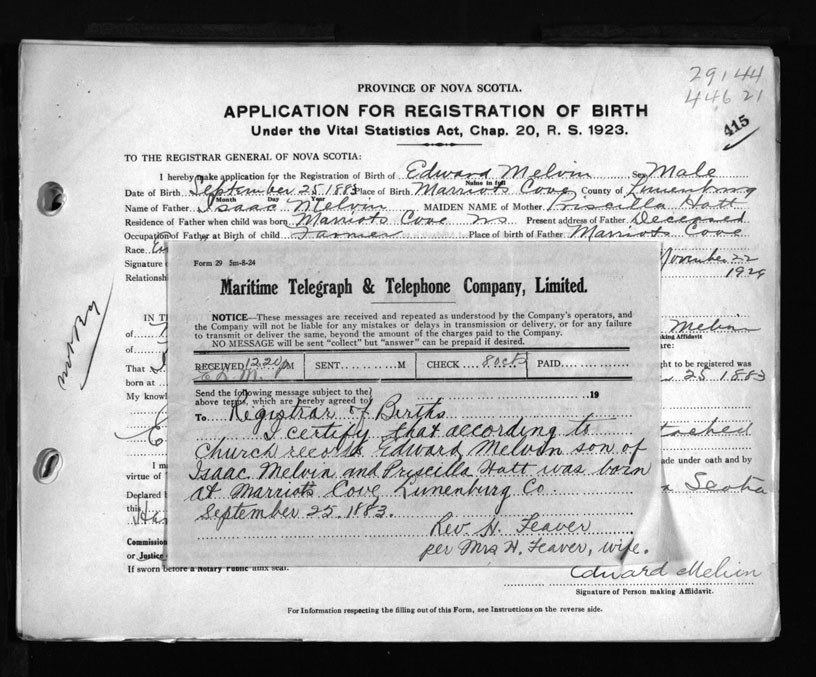 29144
44621
415
PROVINCE OF NOVA SCOTIA.
APPLICATION FOR REGISTRATION OF BIRTH
Under the Vital Statistics Act, Chap. 20, R. S. 1923.
TO THE REGISTRAR GENERAL OF NOVA SCOTIA:
I hereby make application for the Registration of Birth of Edward Melvin Sex Male
Name in full
Date of Birth September 25 1883 Place of Birth Marriots Cove County of Lunenburg
Month Day Year
Name of Father Isaac Melvin MAIDEN NAME of Mother Priscilla Hatt
Residence of Father when child was born Marriots Cove NS Present address of Father Deceased
Occupation of Father at Birth of child Farmer Place of birth of Father Marriots Cove
Race
Signature November 22
Relationsh 1929
Form 29 5m-8-24
Maritime Telegraph & Telephone Company, Limited.
NOTICE—These messages are received and repeated as understood by the Company's operators, and
the Company will not be liable for any mistakes or delays in transmission or delivery, or for any failure
to transmit or deliver the same, beyond the amount of the charges paid to the Company.
NO MESSAGE will be sent "collect" but "answer" can be prepaid if desired.
RECEIVED 12.20p M SENT M CHECK 80cts PAID
Send the following message subject to the
above terms, which are hereby agreed to 19
To Registrar of Births
I certify that according to
Church records Edward Melvin son of
Isaac Melvin and Priscilla Hatt was born
at Marriots Cove Lunenburg Co.
September 25. 1883.
Rev H. Feaver
per Mrs H. Feaver, wife.
IN TH
of Melvin
making Affidavit
of are:
That ght to be registered was
born at 25 1883
My knowl
tached
I ma ade under oath and by
virtue of
Declared Scotia
this
Commission
or Justice
If sworn before a Notary Public affix seal.
Edward Melvin
Signature of Person making Affidavit.
For Information respecting the filling out of this Form, see Instructions on the reverse side.